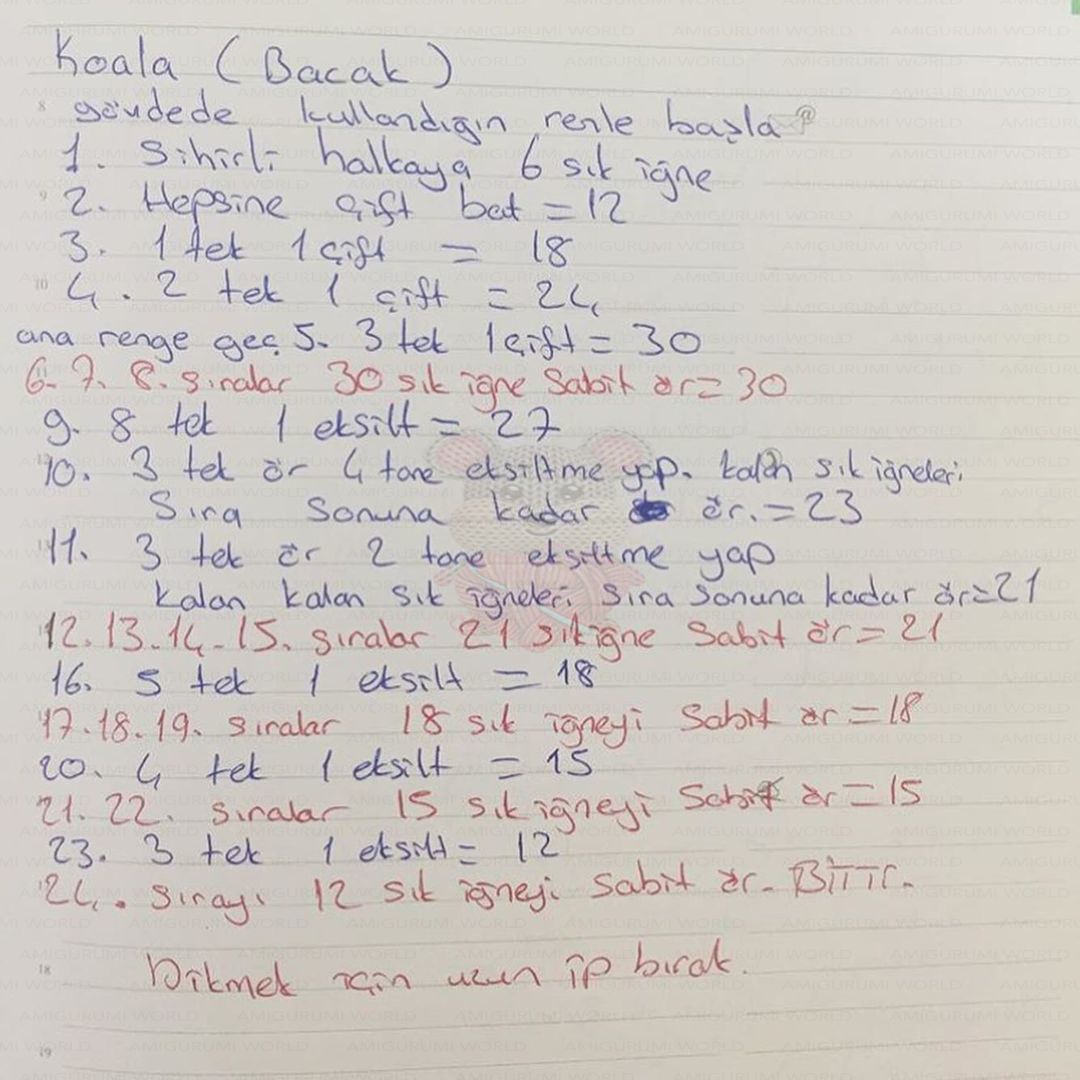 Koala (Bacak)
gövdede kullandığın renle başla
1. Sihirli halkaya 6 sık iğne
2. Hepsine çift bat = 12
3. 1 tek 1 çift = 18
4. 2 tek 1 çift = 24
ana renge geç 5. 3 tek 1 çift = 30
6. 7. 8. sıralar 30 sık iğne sabit ör = 30
9. 8 tek 1 eksilt = 27
10. 3 tek ör 4 tane eksiltme yap. kalan sık iğneleri
Sıra sonuna kadar ör. = 23
11. 3 tek ör 2 tane eksiltme yap
kalan kalan sık iğneleri sıra sonuna kadar ör = 21
12. 13. 14. 15. sıralar 21 sık iğne sabit ör = 21
16. 5 tek 1 eksilt = 18
17. 18. 19. sıralar 18 sık iğneyi sabit ör = 18
20. 4 tek 1 eksilt = 15
21. 22. sıralar 15 sık iğneyi sabit ör = 15
23. 3 tek 1 eksilt = 12
24. sırayı 12 sık iğneyi sabit ör. Bitir.
Dikmek için uzun ip bırak.
AMIGURUMI WORLD
8
9
10
18
19